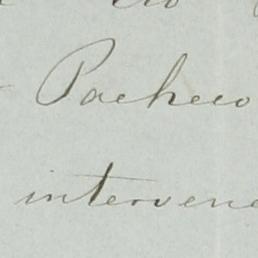 Pacheco
intervene